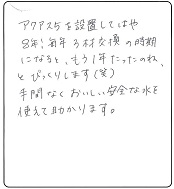 アクアス5を設置してはや
8年！毎年ろ材交換の時期
になると、もう1年たったのね、
とびっくりします(笑)
手間なくおいしい安全な水を
使えて助かります。